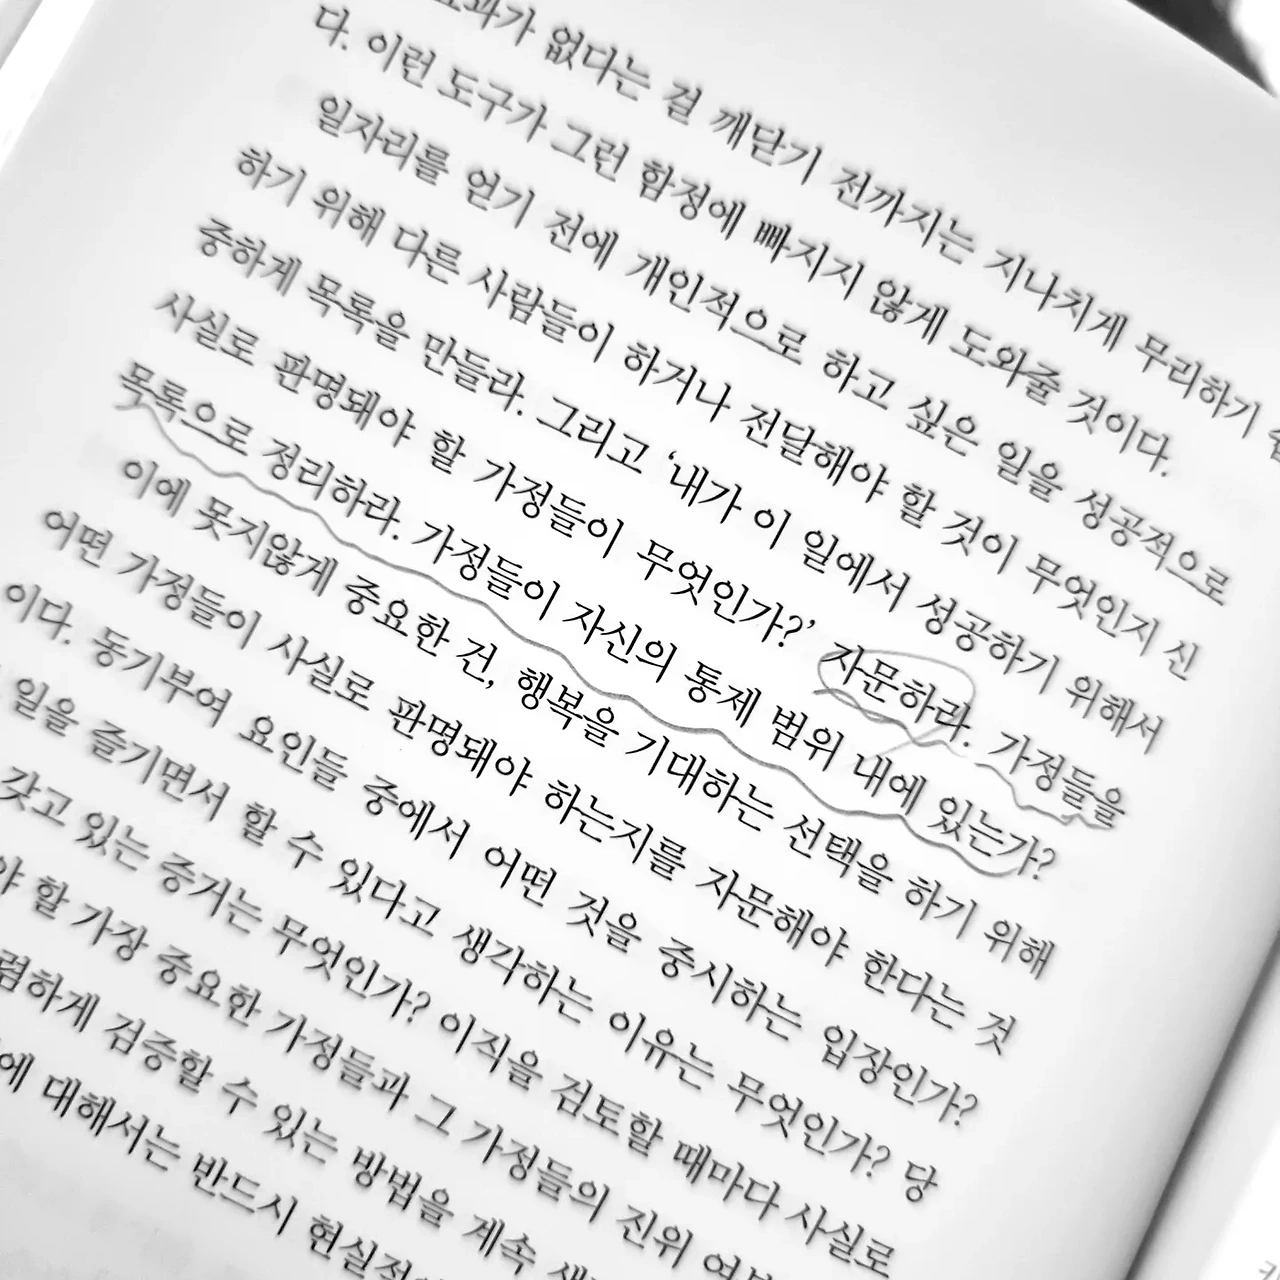 없다는 걸 깨닫기 전까지는 지나치게 무리하기
다. 이런 도구가 그런 함정에 빠지지 않게 도와줄 것이다.
일자리를 얻기 전에 개인적으로 하고 싶은 일을 성공적으로
하기 위해 다른 사람들이 하거나 전달해야 할 것이 무엇인지 신
중하게 목록을 만들라. 그리고 ‘내가 이 일에서 성공하기 위해서
사실로 판명돼야 할 가정들이 무엇인가?’ 자문하라. 가정들을
목록으로 정리하라. 가정들이 자신의 통제 범위 내에 있는가?
이에 못지않게 중요한 건, 행복을 기대하는 선택을 하기 위해
어떤 가정들이 사실로 판명돼야 하는지를 자문해야 한다는 것
이다. 동기부여 요인들 중에서 어떤 것을 중시하는 입장인가?
일을 즐기면서 할 수 있다고 생각하는 이유는 무엇인가? 당
갖고 있는 증거는 무엇인가? 이직을 검토할 때마다 사실로
야 할 가장 중요한 가정들과 그 가정들의 진위
렴하게 검증할 수 있는 방법을 계속
에 대해서는 반드시